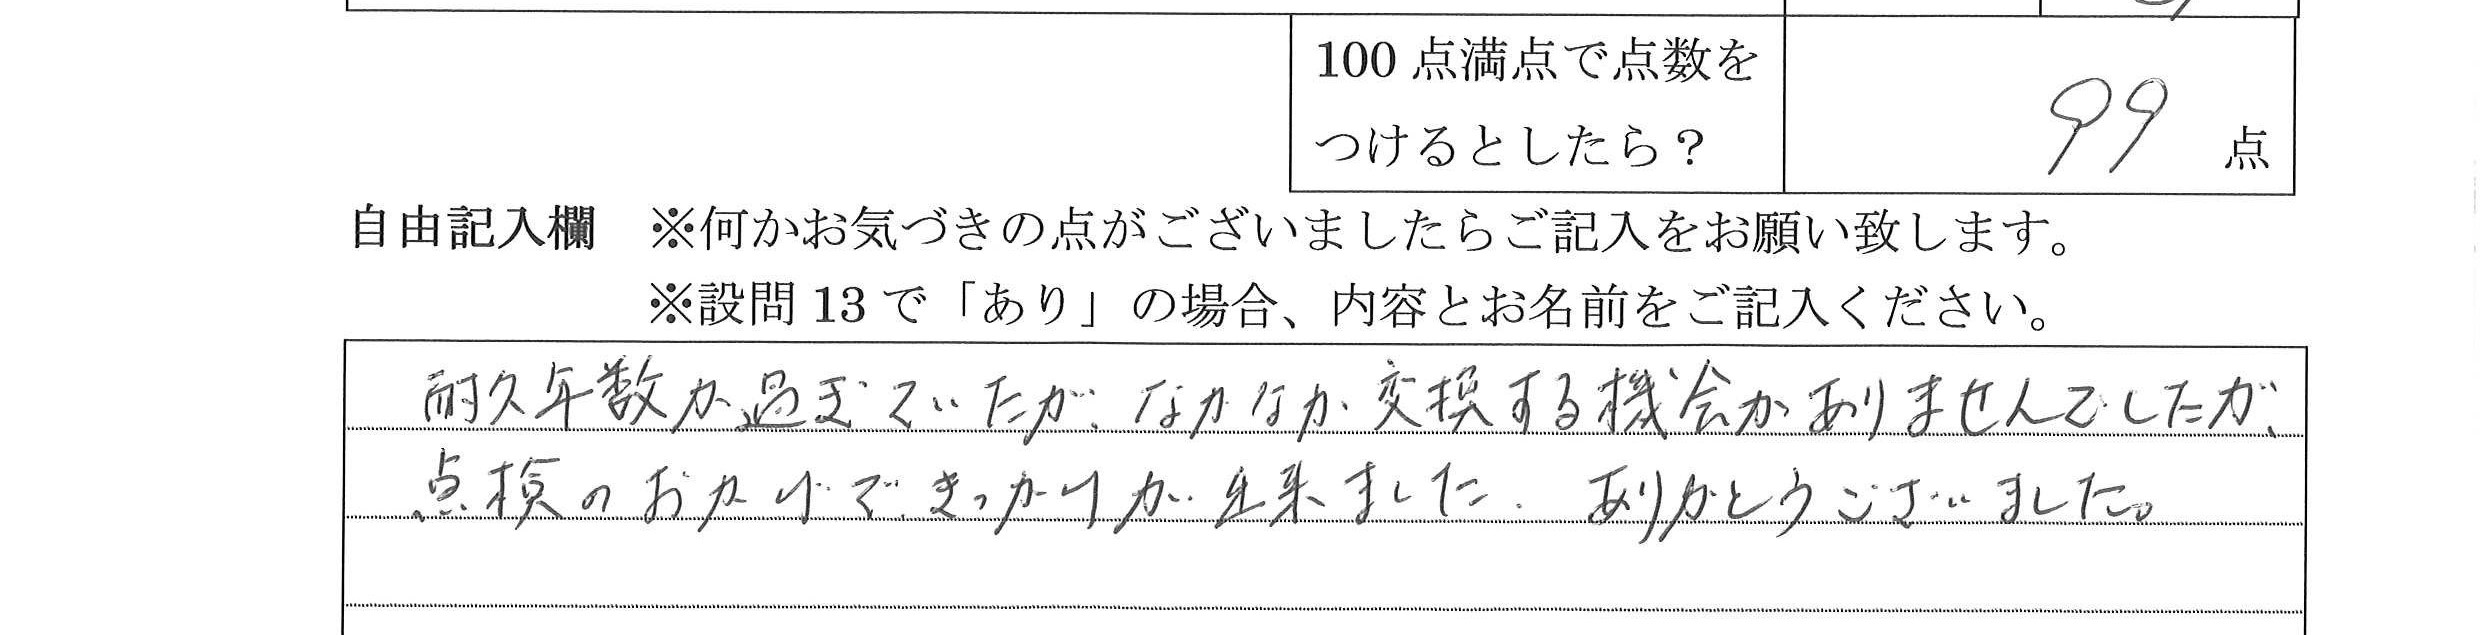 100 点満点で点数を
つけるとしたら？
99 点
自由記入欄　※何かお気づきの点がございましたらご記入をお願い致します。
※設問 13 で「あり」の場合、内容とお名前をご記入ください。
耐久年数が過ぎていたが、なかなか交換する機会がありませんでしたが、
点検のおかげで、きっかけが出来ました。ありがとうございました。